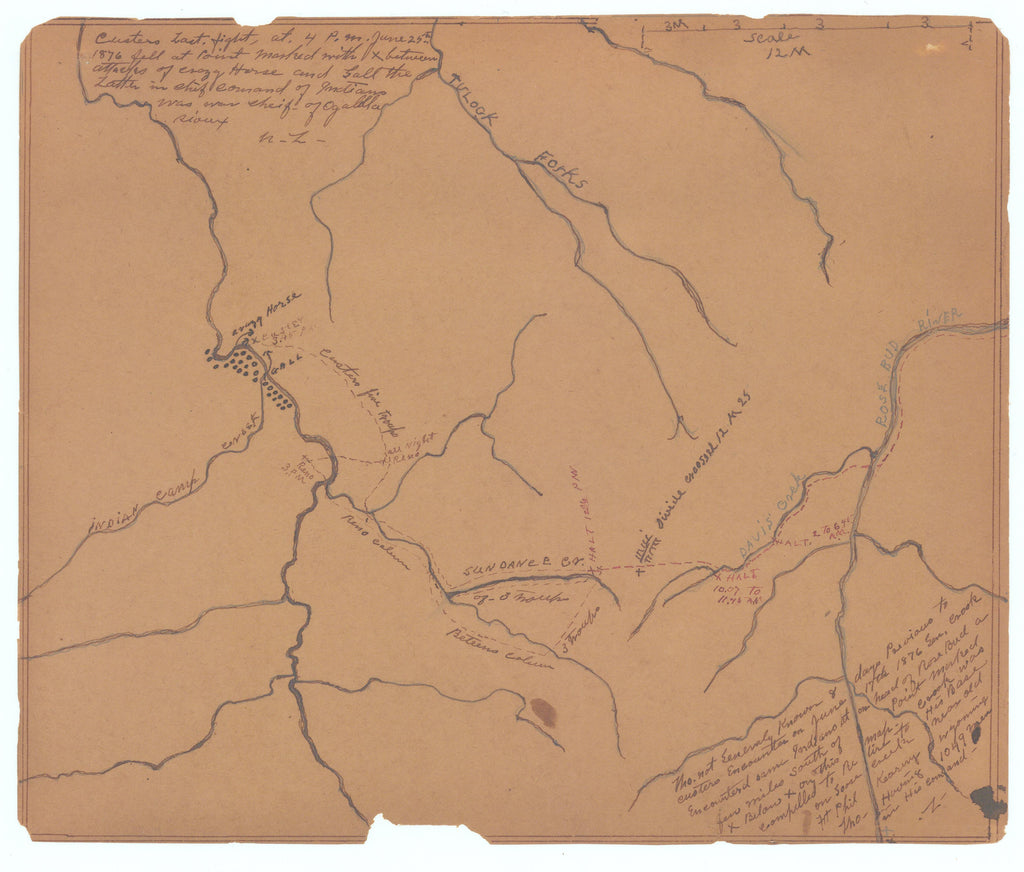 Custers Last. fight at. 4 P.m. June 25th
1876 fell at Point Marked with X between
attacks of crazy Horse and Gall the
Latter in chif comand of Indians
was war cheif- of Ogallla
sioux
N - L -
3M 3 3
Scale
12 M
TULOCK
FORKS
crazy Horse
X CUSTER
GALL
Custers five troops
all night
Reno
Reno
3. P.M.
INDIAN Camp creek
Reno column
SUNDANCE Cr.
of- 8 troops
Beteens column
3 troops
X HALT 12
divide crossed 12 M 25
DAVIS' Creek
HALT. 2 TO
A.M.
X HALT
10.07 TO
11.45 AM
ROSE BUD RIVER
Tho. not Generaly Known 8 days Previous to
custers Encounter on June 17th 1876 Gen. Crook
Encounterd same Indians at on head of Rose Bud a
few miles south of map Point marked
X Below + on this crook was
compilled to Re tire to His Base
on Goose creek near old
Ft Phil Kearny wyoming
Tho- Having 1049 men
in His comand -
L -